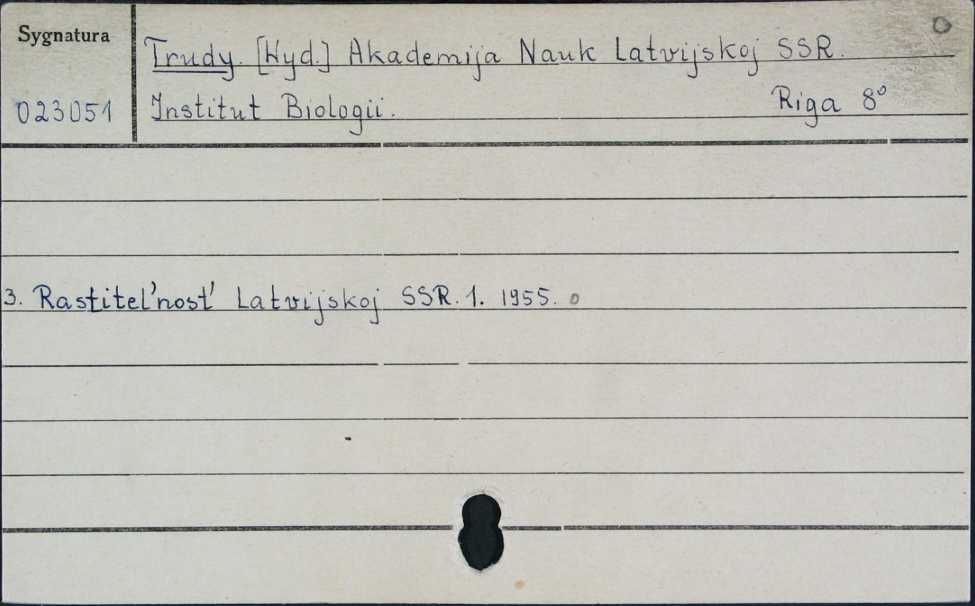 Sygnatura
023051
Trudy. [Wyd.] Akademija Nauk Latvijskoj SSR.
Institut Biologii. Riga 8°
3. Rastitel'nost' Latvijskoj SSR. 1. 1955. o